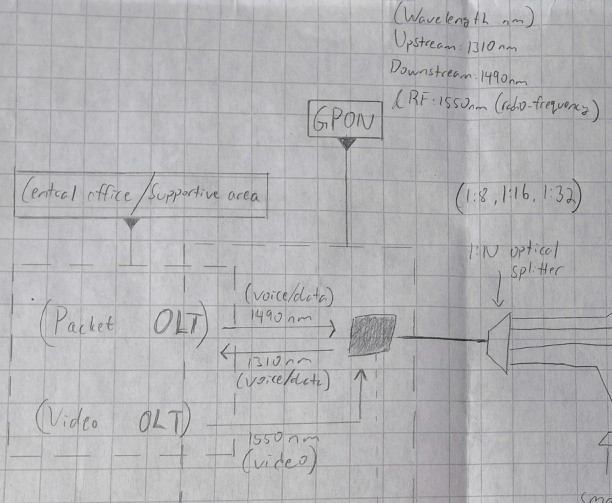 (Wavelength nm)
Upstream:1310nm
Downstream:1490nm
RF:1550nm (radio-frequency)
GPON
Central office/Supportive area
(1:8, 1:16, 1:32)
1:N optical
splitter
(voice/data)
1490nm
(Packet OLT)
1310nm
(voice/data)
(Video OLT)
1550nm
(video)